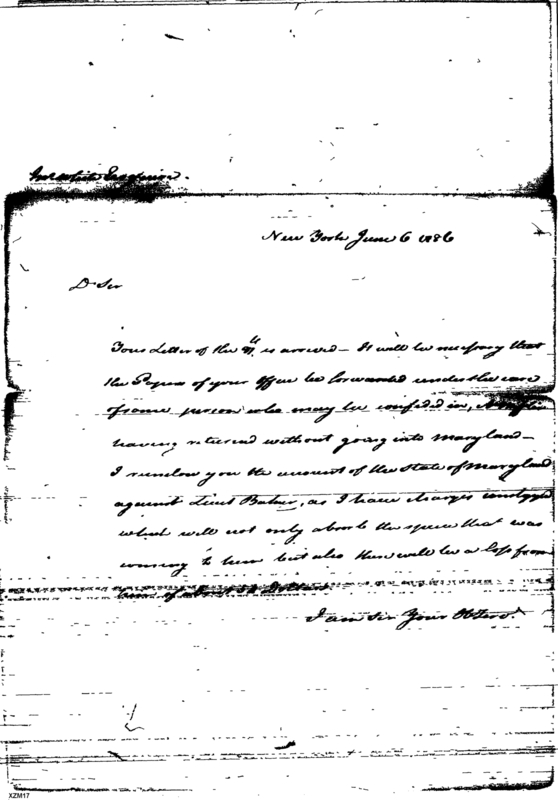 New York June 6 1786
D Sir
Your Letter of the 4 is arrived - It will be necessary that
the Papers of your Office be forwarded under the care
of some person who may be confided in,
having returned without going into Maryland -
I enclose you the account of the State of Maryland
against Lieut, as I have charges
which will not only absorb the specie that was
coming to him but also there will be a loss from
him of about Dollars
I am Sir Your Obt Serv.t
XZM17